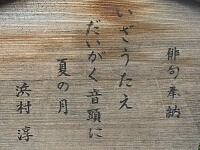 俳句奉納
いざうたえ
だいがく音頭に
夏の月
浜村淳